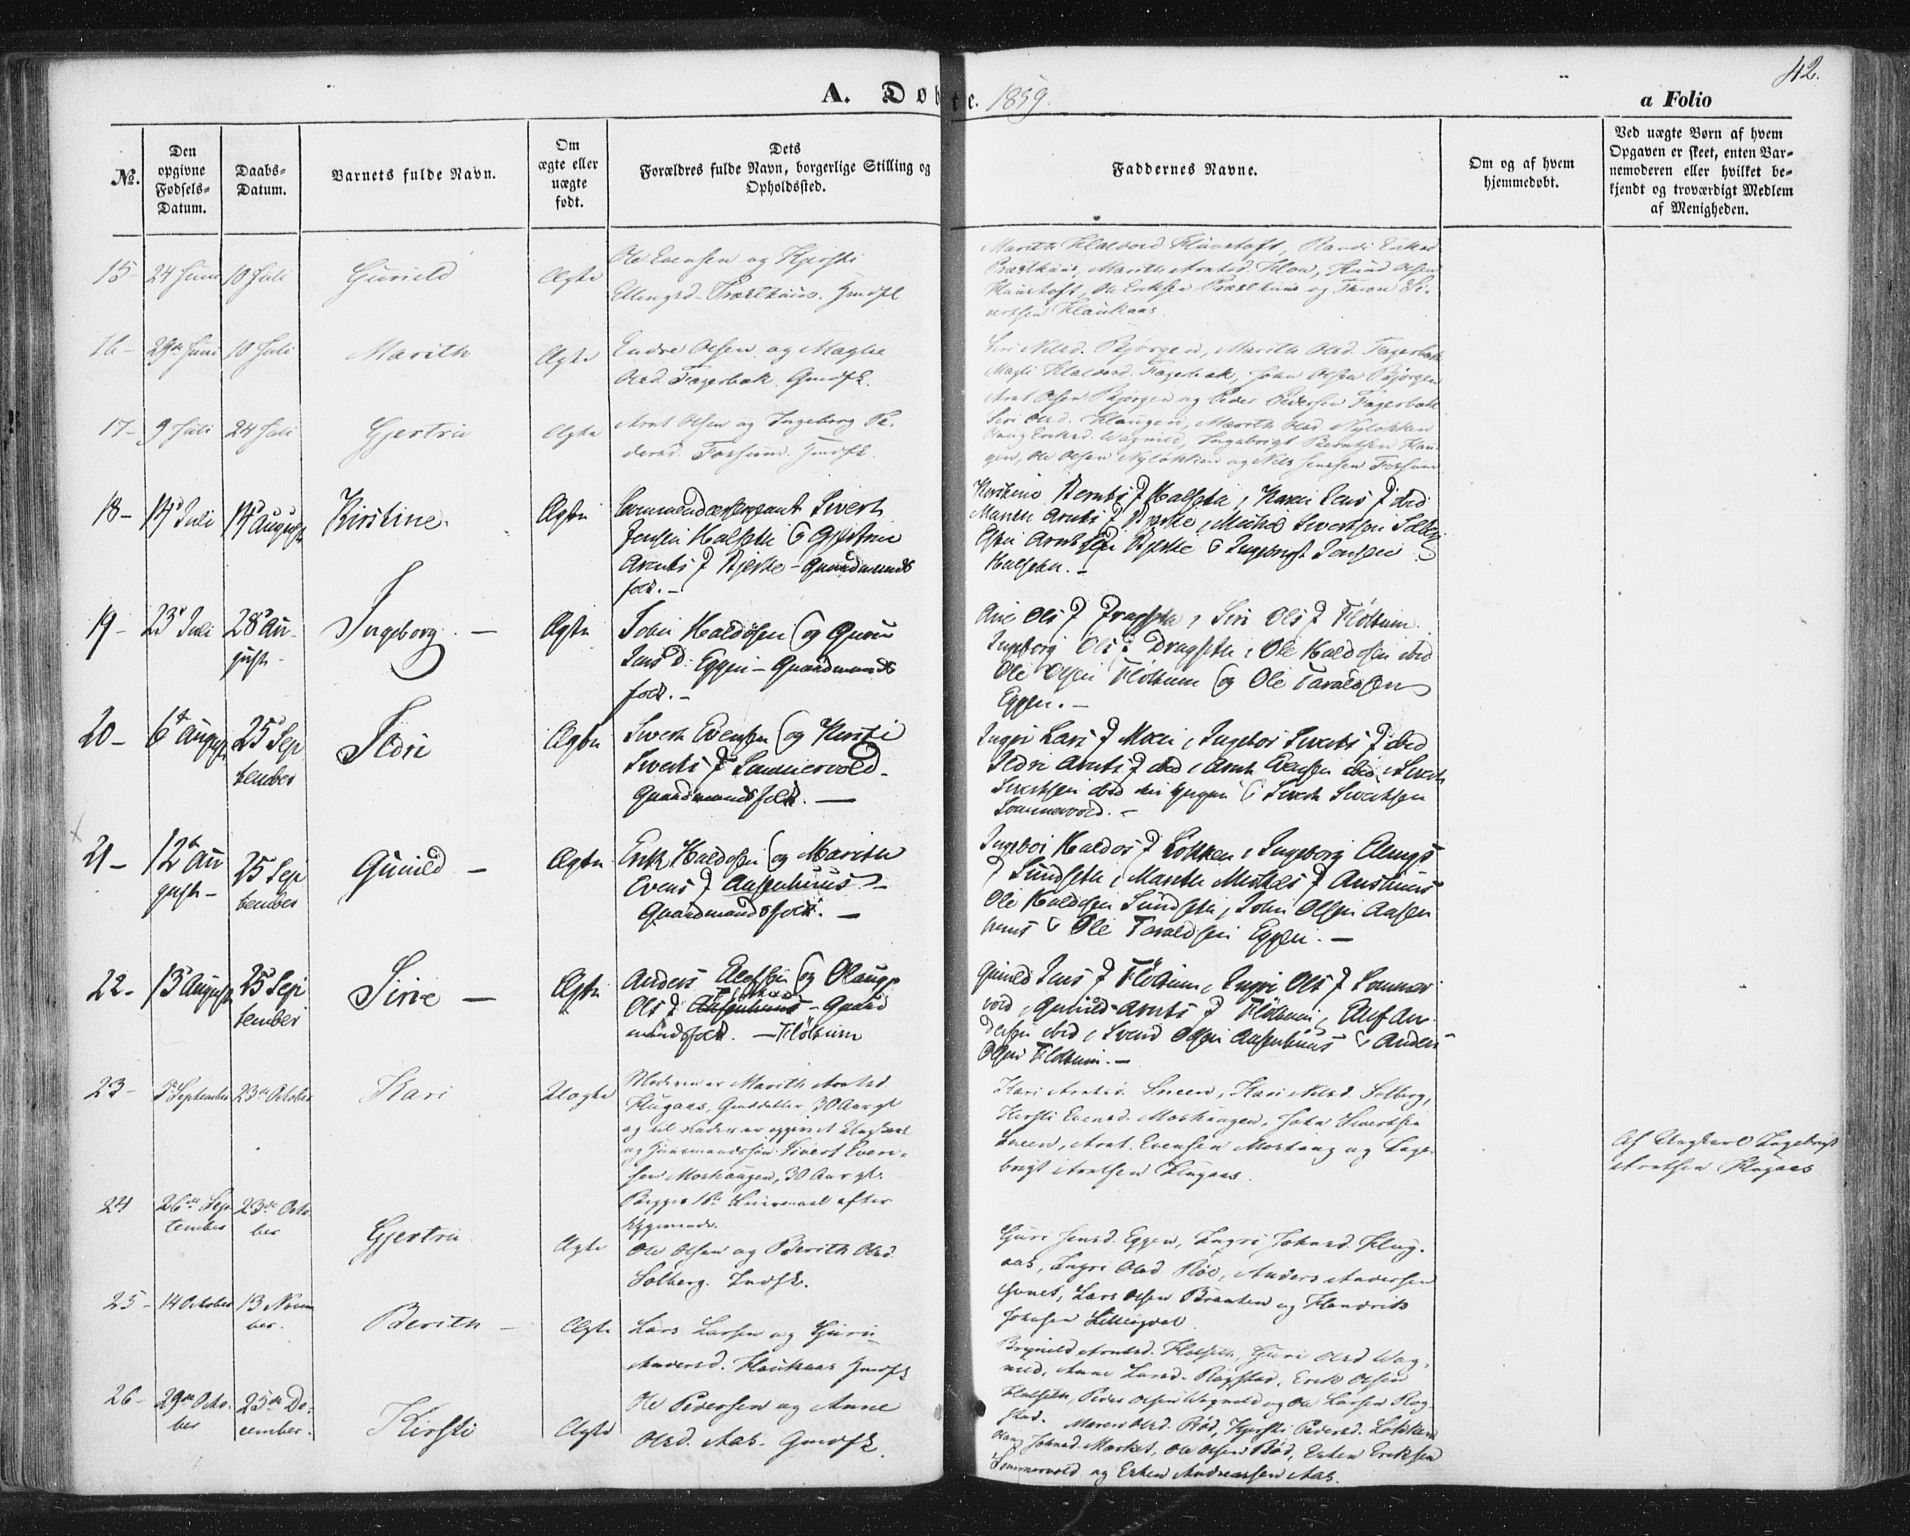 42.
A. Døbte. 1859.
a Folio
No.
Den opgivne Fødsels-Datum.
Daabs-Datum.
Barnets fulde Navn.
Om ægte eller uægte født.
Dets Forældres fulde Navn, borgerlige Stilling og Opholdssted.
Faddernes Navne.
Om og af hvem hjemmedøbt.
Ved uægte Børn af hvem Opgaven er skeet, enten Barnemoderen eller hvilket bekjendt og troværdigt Medlem af Menigheden.
15 24 Juni 10 Juli Gunild Ægte
Ole Evensen og Kjersti
Ellingsd. Præsthuus. Gmdfk
Marith Haldorsd
Præsthuus, Marith Arntsd. Moe, Olsen
Ole Eriksen Præsthuus og
16 - 29de Juni 10 Juli Marith Ægte
Endre Olsen og Magli
Olsd. Fagerbak. Gmdfk.
Siri Nilsd. Bjørgen, Marith Olsd. Fagerbak
Magli Haldorsd. Fagerbak, John Olsen Bjørgen
Arnt Olsen Bjørgen og Peder Pedersen Fagerbak
17- 9 Juli 24 Juli Gjertru Ægte
Arnt Olsen og Ingeborg Pe-
dersd. Forsum. Gmdfk.
Siri Olsd. Haugen, Marith Olsd. Nyløkken
Eriksd. Wagnild, Ingebrigt Berntsen Hau-
gen, Ole Olsen Nyløkken og Nils Jensen Forsum
18- 14 Juli 14 August Kirstine. Ægte
Sivert
Jensen Halseth og Gjertrue
Arnts D Bjerke - Gaardmands
folk. -
Kirstine Bernts D Halseth, Karen Jens D ibid
Marith Arnts D Bjerke, Mikal Sivertsen Solberg
Esten Arntsen Bjerke & Ingebrigt Jensen
Halseth. -
19- 23 Juli 28 Au-
gust- Ingeborg. - Ægte
John Haldosen og Guru
Jens D. Eggen - Gaardmands
folk. -
Ane Ols D Dragseth, Siri Ols D Fløttum
Ingeborg Ols D Dragseth, Ole Haldosen ibid
Ole Olsen Fløttum og Ole Taraldsen
Eggen. -
20- 6 August 25 Sep
tember Ildri Ægte
Sivert Evensen og Kirsti
Siverts D Sommervold.
Gaardmandsfolk. -
Ingri Lars D Moen, Ingebor Siverts D ibid
Ildri Arnts D ibid, Arnt Evensen ibid, Sivert
Sivertsen ibid & Sivert Sivertsen
Sommervold. -
21- 12 Au
gust- 25 Sep
tember Gunild - Ægte
Erik Haldosen og Marith
Evens D Aasenhuus -
Gaardmandsfolk. -
Ingebor Haldos D Løkken, Ingeborg Ellings
D Sundseth, Marith Mikkels D Aashuus
Ole Haldosen Sundseth, John Olsen Aasen
huus & Ole Taraldsen Eggen. -
22- 13 August 25 Sep
tember Sirie - Ægte
Anders Olofsen og Olaug
Ols D Aasenhuus - Gaard
mandsfolk. - Fløttum
Gunild Jens D Fløttum, Ingri Ols D Sommer
vold, Gunild Arnts D Fløttum, Oluf An-
dersen ibid, Svend Olsen Aasenhuus & Anders
Olsen Fløttum. -
23- 5 September 23de October Kari Uægte
Moderen er Marith Arntsd.
Flugaas, 30 Aar gl.
og til Fader er opgivet Ungkarl
og Huusmandssøn Sivert Even-
sen Moshaugen, 30 Aar gl.
Begges 1ste Leiermaal efter
Opgivende.
Kari Arntsd. Sneen, Kari Nilsd. Solberg,
Kirsti Evensd. Moshaugen, John Sivertsen
Sneen, Arnt Evensen Moshaug og Inge-
brigt Arntsen Flugaas.
Af Ungkarl Ingebrigt
Arntsen Flugaas
24 26de Sep
tember 23de Octo
ber Gjertru Ægte
Ole Olsen og Berith Olsd.
Solberg. Indfk.
Guri Jensd. Eggen, Ingri Johnsd. Flug-
aas, Ingri Olsd Røe, Anders Andersen
Lars Olsen Brenten og Hendrik
Johnsen
25- 14 October 13 Novem
ber. Berith - Ægte
Lars Larsen og Guru
Andersd. Haukaas Gmdfk
Brynild Arntsd. Halseth, Guri Olsd Wag-
nild, Anne Larsd. Rogstad, Erik Olsen
Halseth, Peder Olsen Wagnild og Ole Larsen Rog-
stad.
26- 29de Octo-
ber 25de De-
cember. Kirsti Ægte
Ole Pedersen og Anne
Olsd. Aas. Gmdfk.
Maren Olsd. Rød, Kjersti Pedersd. Løkken
Johnsd. Ole Olsen Rød, Esten Eriksen
Sommervold og Esten Andreassen Aas.